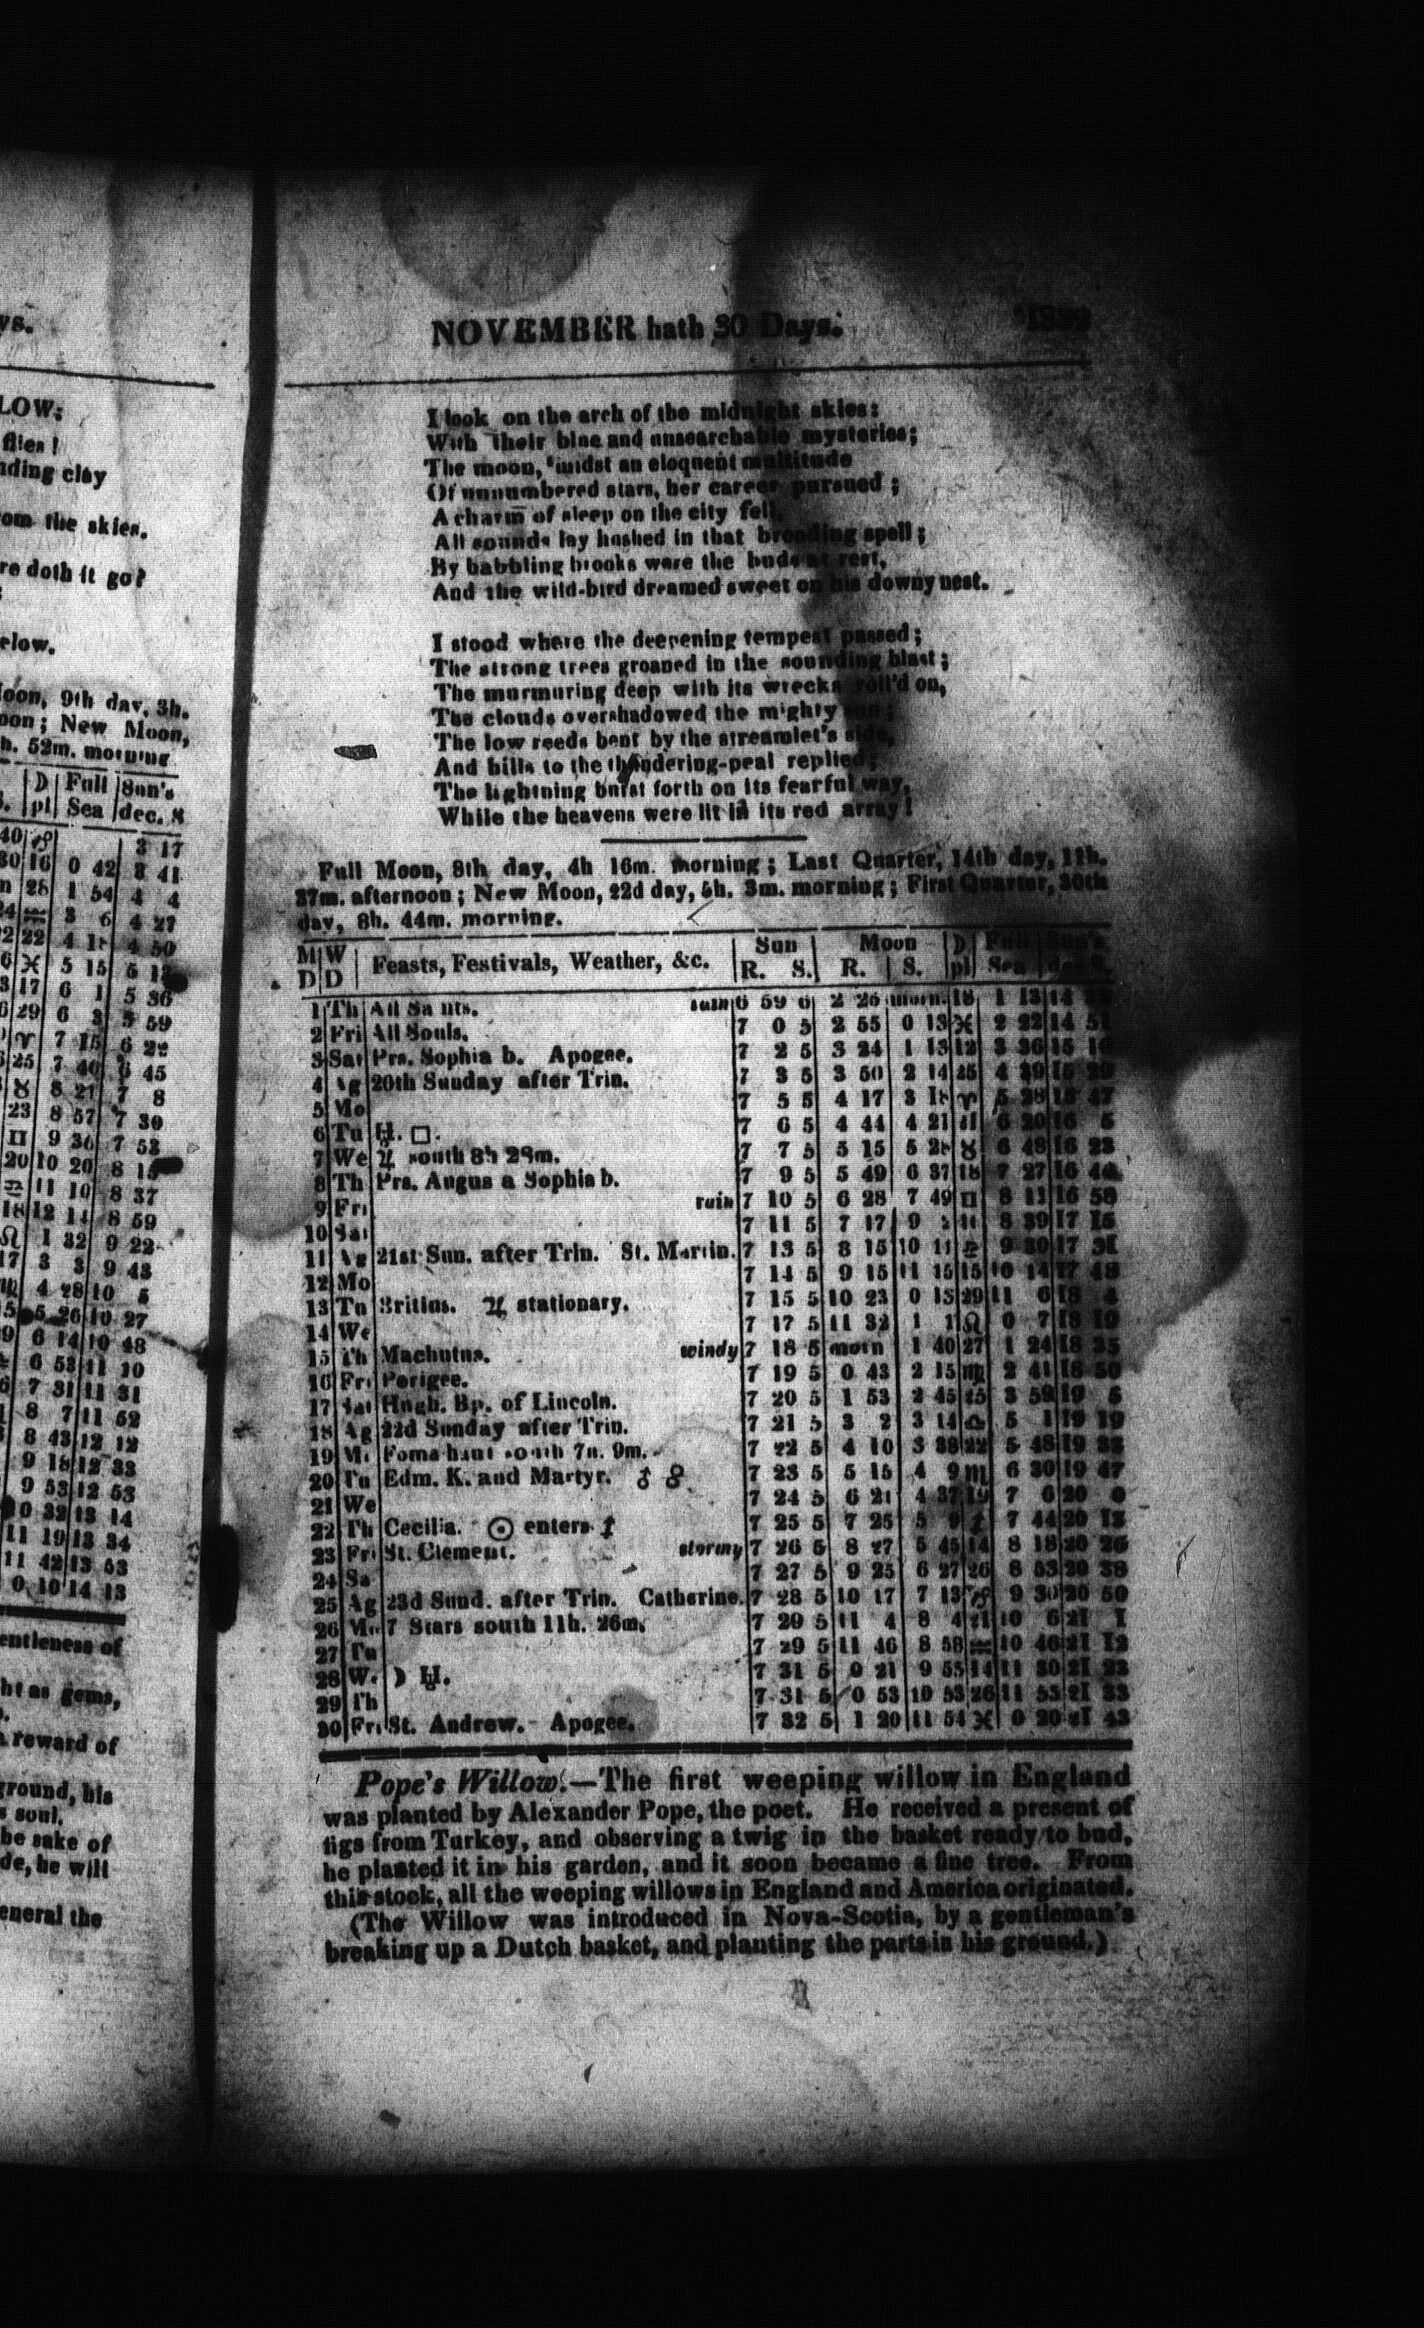 ys.
LOW:
flies!
nding clay
om the skies.
re doth it go?
elow.
Moon, 9th day, 3h.
oon; New Moon,
h. 52m. morning
D Full Sun's
pl Sea dec. S
40 ♑ 3 17
30 16 0 42 3 41
n 28 1 54 4 4
24 ♒ 3 6 4 27
22 22 4 18 4 50
6 ♓ 5 15 5 12
3 17 6 1 5 36
6 29 6 3 5 59
♈ 7 15 6 22
25 7 40 6 45
♉ 8 21 7 8
23 8 57 7 30
♊ 9 36 7 53
20 10 20 8 15
♋ 11 10 8 37
18 12 14 8 59
♌ 1 32 9 22
17 3 3 9 43
♍ 4 28 10 5
5 5 26 10 27
9 6 14 10 48
6 53 11 10
6 7 31 11 31
8 7 11 52
8 43 12 12
9 18 12 33
9 53 12 53
0 32 13 14
11 19 13 34
11 42 13 53
0 10 14 13
entleness of
ht as gems,
reward of
ground, his
s soul.
he sake of
de, he will
eneral the
NOVEMBER hath 30 Days.
I look on the arch of the midnight skies:
With their blue and unsearchable mysteries;
The moon, 'midst an eloquent multitude
Of unnumbered stars, her career pursued;
A charm of sleep on the city fell,
All sounds lay hushed in that brooding spell;
By babbling brooks were the buds at rest,
And the wild-bird dreamed sweet on his downy nest.
I stood where the deepening tempest passed;
The strong trees groaned in the sounding blast;
The murmuring deep with its wrecks roll'd on,
The clouds overshadowed the mighty sun;
The low reeds bent by the streamlet's side,
And hills to the thundering-peal replied;
The lightning burst forth on its fearful way,
While the heavens were lit in its red array!
Full Moon, 8th day, 4h 16m. morning; Last Quarter, 14th day, 11h.
37m. afternoon; New Moon, 22d day, 5h. 3m. morning; First Quarter, 30th
day, 8h. 44m. morning.
M W Feasts, Festivals, Weather, &c. Sun Moon D Full Sun's
D D R. S. R. S. pl Sea dec. S.
1 Th All Saints. rain 6 59 6 2 26 morn. 18 1 13 14
2 Fri All Souls. 7 0 5 2 55 0 13 ♓ 2 22 14 51
3 Sat Prs. Sophia b. Apogee. 7 2 5 3 24 1 13 12 3 36 15 10
4 Ag 20th Sunday after Trin. 7 3 5 3 50 2 14 25 4 39 15 29
5 Mo 7 5 5 4 17 3 18 ♈ 5 28 15 47
6 Tu ♅. □. 7 6 5 4 44 4 21 11 6 20 16 5
7 We ♃ south 8h 28m. 7 7 5 5 15 5 28 ♉ 6 48 16 23
8 Th Prs. Augus a Sophia b. 7 9 5 5 49 6 37 18 7 27 16 40
9 Fri rain 7 10 5 6 28 7 49 ♊ 8 11 16 58
10 Sat 7 11 5 7 17 9 8 39 17 15
11 Ag 21st Sun. after Trin. St. Martin. 7 13 5 8 15 10 11 ♋ 9 30 17 31
12 Mo 7 14 5 9 15 11 15 15 10 14 17 48
13 Tu Britius. ♃ stationary. 7 15 5 10 23 0 15 29 11 6 18 4
14 We 7 17 5 11 32 1 1 ♌ 0 7 18 19
15 Th Machutus. windy 7 18 5 morn 1 40 27 1 24 18 35
16 Fri Perigee. 7 19 5 0 43 2 15 ♍ 2 41 18 50
17 Sat Hugh. Bp. of Lincoln. 7 20 5 1 53 2 45 25 3 59 19 5
18 Ag 22d Sunday after Trin. 7 21 5 3 2 3 14 ♎ 5 1 19 19
19 Mo Fomalhaut south 7h. 9m. 7 22 5 4 10 3 38 22 5 48 19 33
20 Tu Edm. K. and Martyr. ♁ ☍ 7 23 5 5 15 4 9 ♏ 6 30 19 47
21 We 7 24 5 6 21 4 37 19 7 6 20 0
22 Th Cecilia. ☉ enters ♐ 7 25 5 7 25 5 9 ♐ 7 44 20 13
23 Fri St. Clement. stormy 7 26 5 8 27 5 45 14 8 18 20 26
24 Sa 7 27 5 9 25 6 27 26 8 53 20 38
25 Ag 23d Sund. after Trin. Catherine. 7 28 5 10 17 7 13 ♑ 9 30 20 50
26 Mo 7 Stars south 11h. 26m. 7 29 5 11 4 8 4 21 10 6 21 1
27 Tu 7 29 5 11 46 8 58 ♒ 10 46 21 12
28 We ☽ ♅. 7 31 5 0 21 9 55 14 11 30 21 23
29 Th 7 31 5 0 53 10 53 26 11 53 21 33
30 Fri St. Andrew. Apogee. 7 32 5 1 20 11 54 ♓ 0 20 21 43
Pope's Willow.—The first weeping willow in England
was planted by Alexander Pope, the poet. He received a present of
figs from Turkey, and observing a twig in the basket ready to bud,
he planted it in his garden, and it soon became a fine tree. From
this stock, all the weeping willows in England and America originated.
(The Willow was introduced in Nova-Scotia, by a gentleman's
breaking up a Dutch basket, and planting the parts in his ground.)